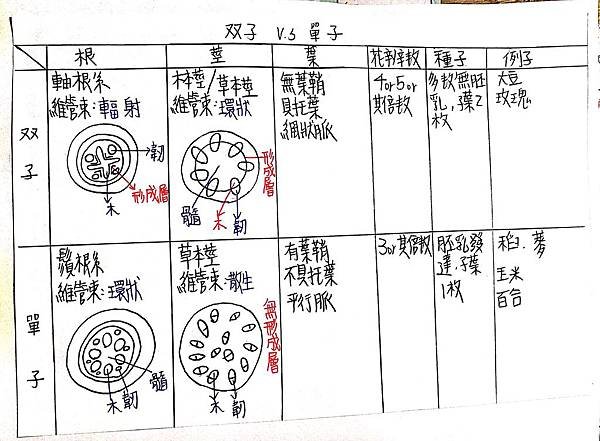 双子 V.S 單子
根 莖 葉 花瓣數 種子 例子
双子
軸根系
維管束:輻射
韌
形成層
木
木本莖/草本莖
維管束:環狀
形成層
髓
木
韌
無葉鞘
具托葉
網狀脈
4or5or
其倍數
多數無胚
乳,子葉2
枚
大豆
玫瑰
單子
鬚根系
維管束:環狀
髓
木 韌
草本莖
維管束:散生
無形成層
木 韌
有葉鞘
不具托葉
平行脈
3or其倍數
胚乳發
達,子葉
1枚
稻.麥
玉米
百合